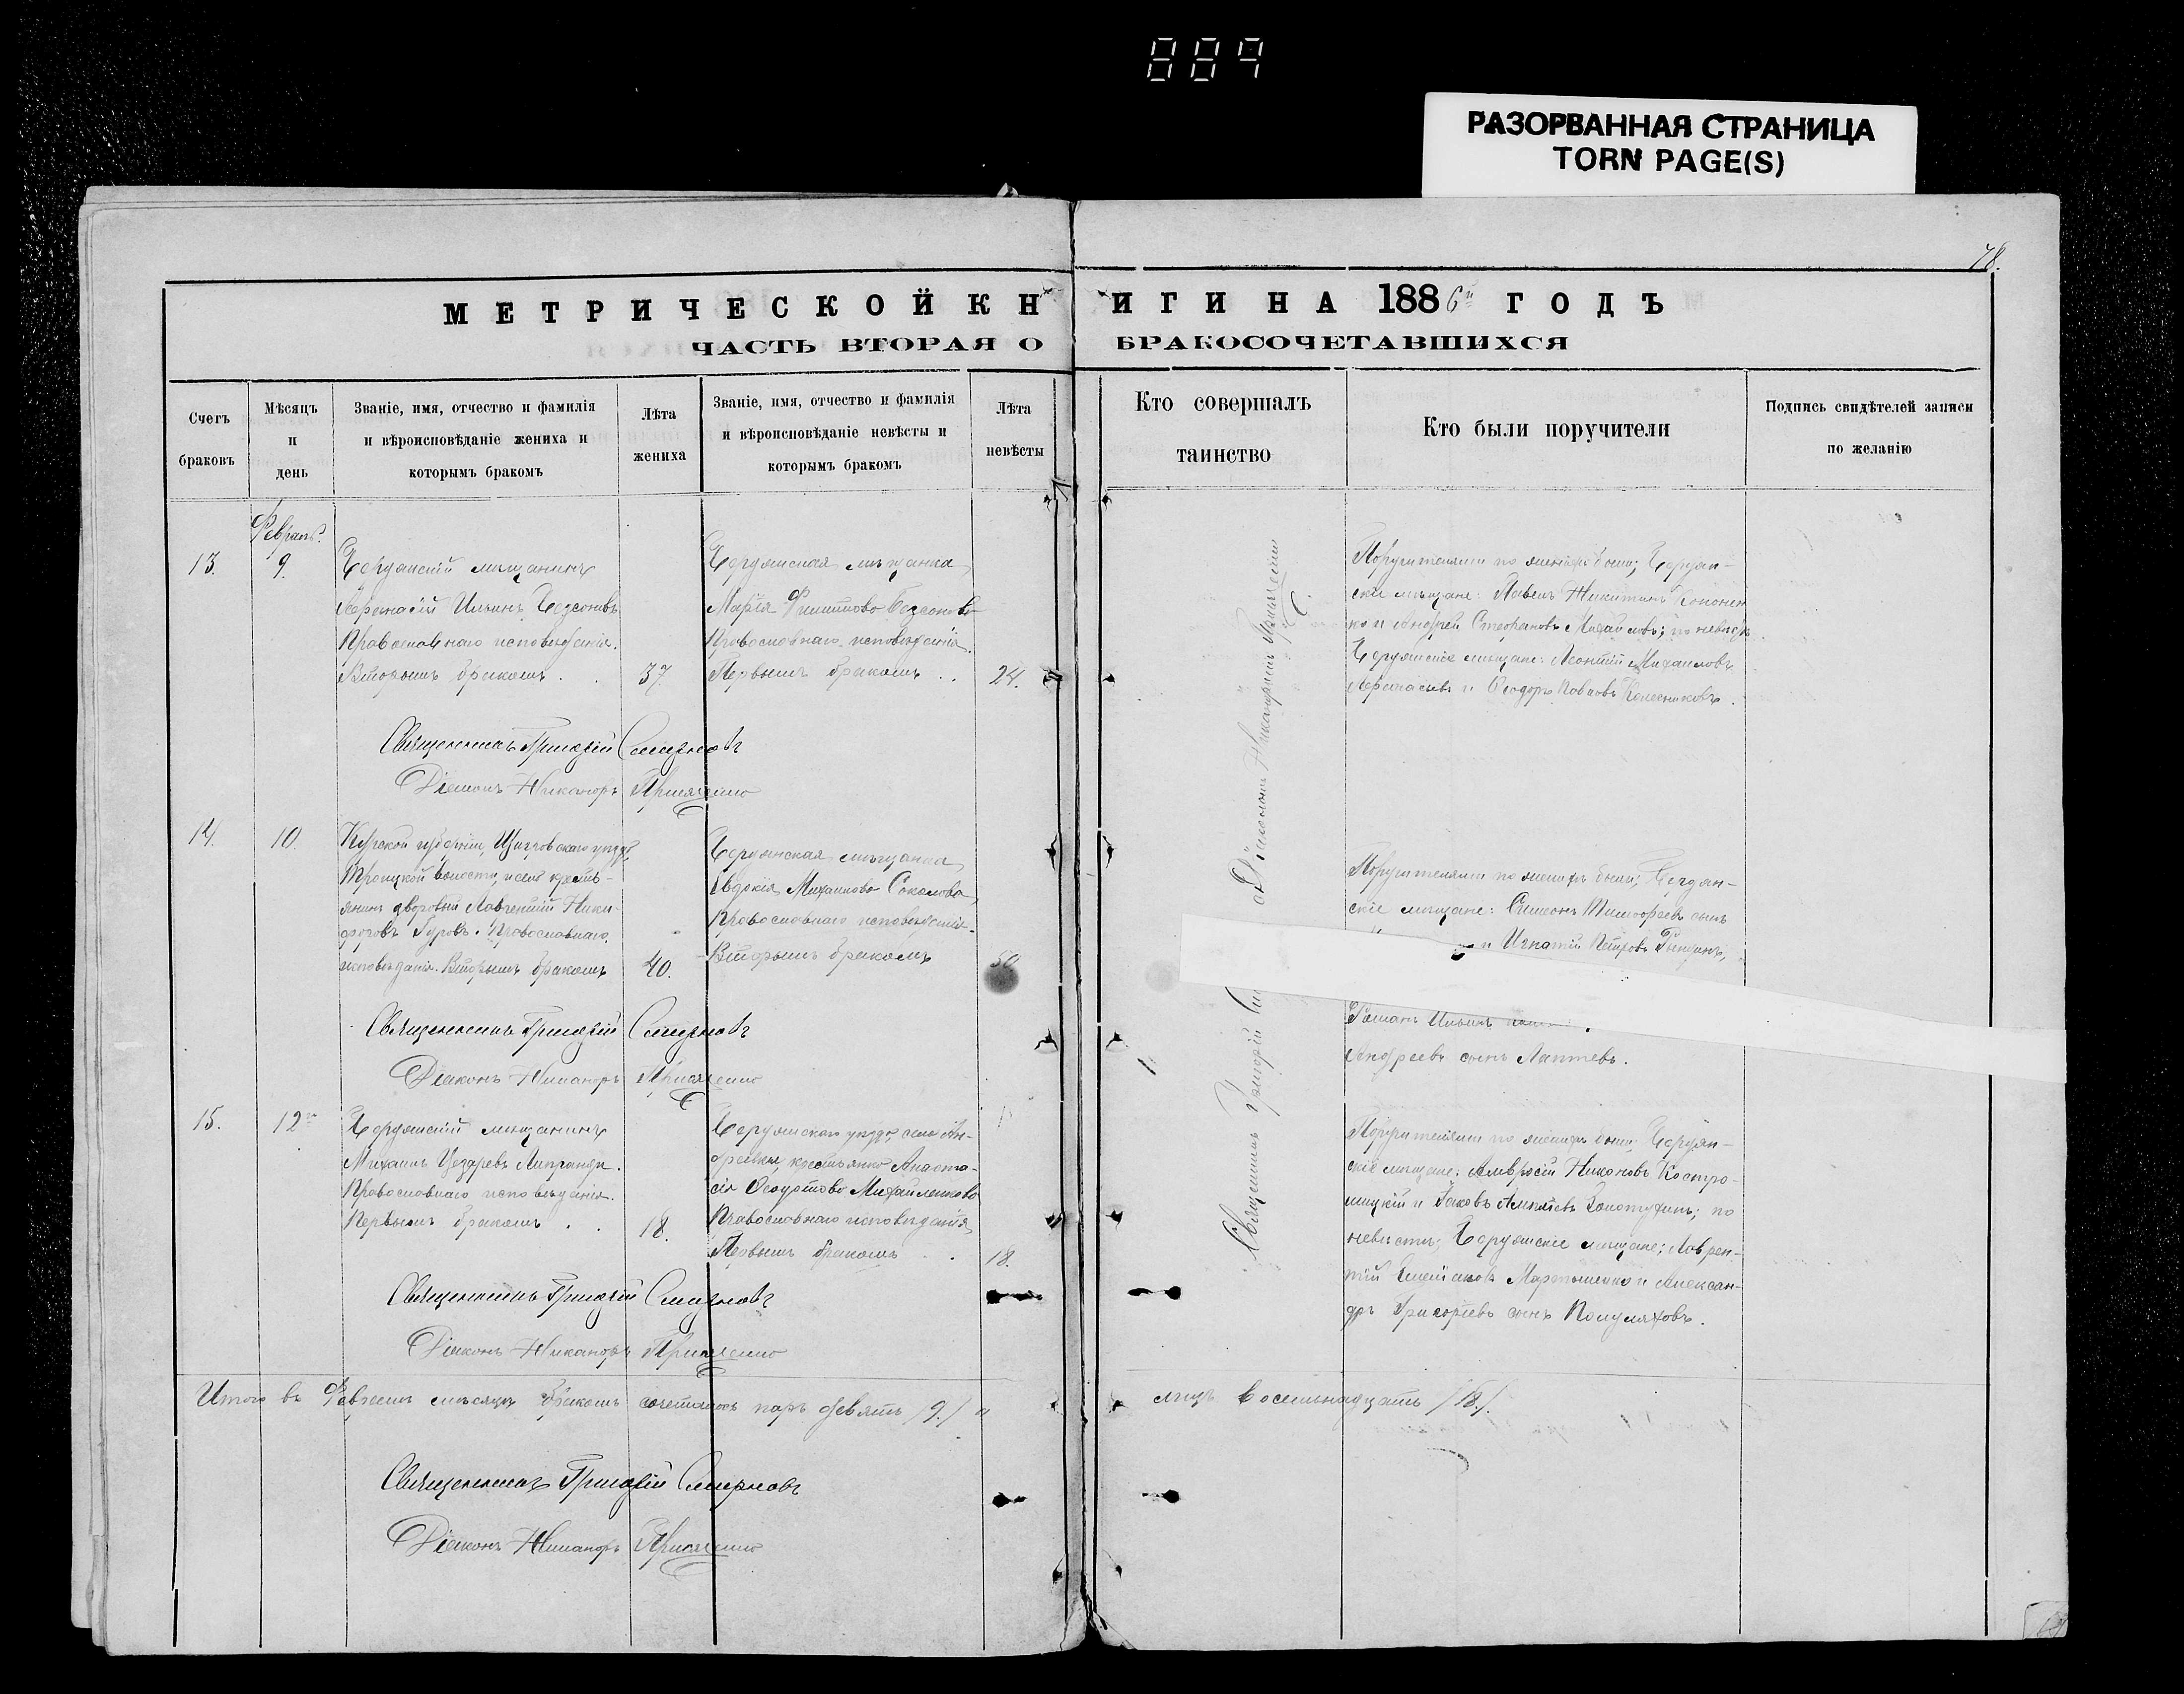 889
РАЗОРВАННАЯ СТРАНИЦА
TORN PAGE(S)
78.
МЕТРИЧЕСКОЙ КНИГИ НА 1886й ГОДЪ
ЧАСТЬ ВТОРАЯ О БРАКОСОЧЕТАВШИХСЯ
Счетъ браковъ
Мѣсяцъ и день
Званіе, имя, отчество и фамилія
и вѣроисповѣданіе жениха и
которымъ бракомъ
Лѣта жениха
Званіе, имя, отчество и фамилія
и вѣроисповѣданіе невѣсты и
которымъ бракомъ
Лѣта невѣсты
Кто совершалъ
таинство
Кто были поручители
Подпись свидѣтелей записи
по желанію
Февраль.
13.
9.
Бердянскій мѣщанинъ
Афанасій Ильинъ Безсоновъ
Православнаго исповѣданія.
Вторымъ бракомъ . .
37.
Бердянская мѣщанка
Марія Филиппова
Православнаго исповѣданія.
Первымъ бракомъ . .
24.
Поручителями по женихѣ были; Бердян-
скіе мѣщане: Павелъ Никитинъ Кононен
ко и Андрей Стефановъ Михайловъ; по невѣстѣ
Бердянскіе мѣщане: Леонтій Михаиловъ
Афанасьевъ и Ѳеодоръ Павловъ Колесниковъ.
Священникъ Григорій Смирновъ
Діаконъ Никаноръ
14.
10.
Курской губерніи, Щигровскаго уѣзда,
Троицкой волости, крестья-
нинъ Лаврентій Ники-
форовъ Гуровъ. Православнаго
исповѣданія. Вторымъ бракомъ
40.
Бердянская мѣщанка
Евдокія Михаилова Соколова
Православнаго исповѣданія.
Вторымъ бракомъ
50.
Поручителями по женихѣ были; Бердян-
скіе мѣщане: Симеонъ Тимофеевъ сынъ
и Игнатій Петровъ
Романъ Ильинъ
Андреевъ сынъ Лаптевъ.
Священникъ Григорій Смирновъ
Діаконъ Никаноръ
15.
12го
Бердянскій мѣщанинъ
Михаилъ Цезаревъ Липранди.
Православнаго исповѣданія.
Первымъ бракомъ . .
18.
Бердянскаго уѣзда, села Ан-
дреевки, крестьянка Анаста-
сія Ѳеодотова Михайленкова
Православнаго исповѣданія,
Первымъ бракомъ . .
18.
Поручителями по женихѣ были; Бердян-
скіе мѣщане: Амвросій Никоновъ Костро-
мицкій и Іаковъ Золотухинъ; по
невѣстѣ; Бердянскіе мѣщане: Лаврен-
тій и Алексан-
дръ Григорьевъ сынъ Полуляховъ.
Священникъ Григорій Смирновъ
Діаконъ Никаноръ
Священникъ Григорій
Діакономъ Никаноромъ
Итого въ Февралѣ мѣсяцѣ бракомъ сочеталось паръ девять /9./ а
лицъ восемьнадцать /18/.
Священникъ Григорій Смирновъ
Діаконъ Никаноръ